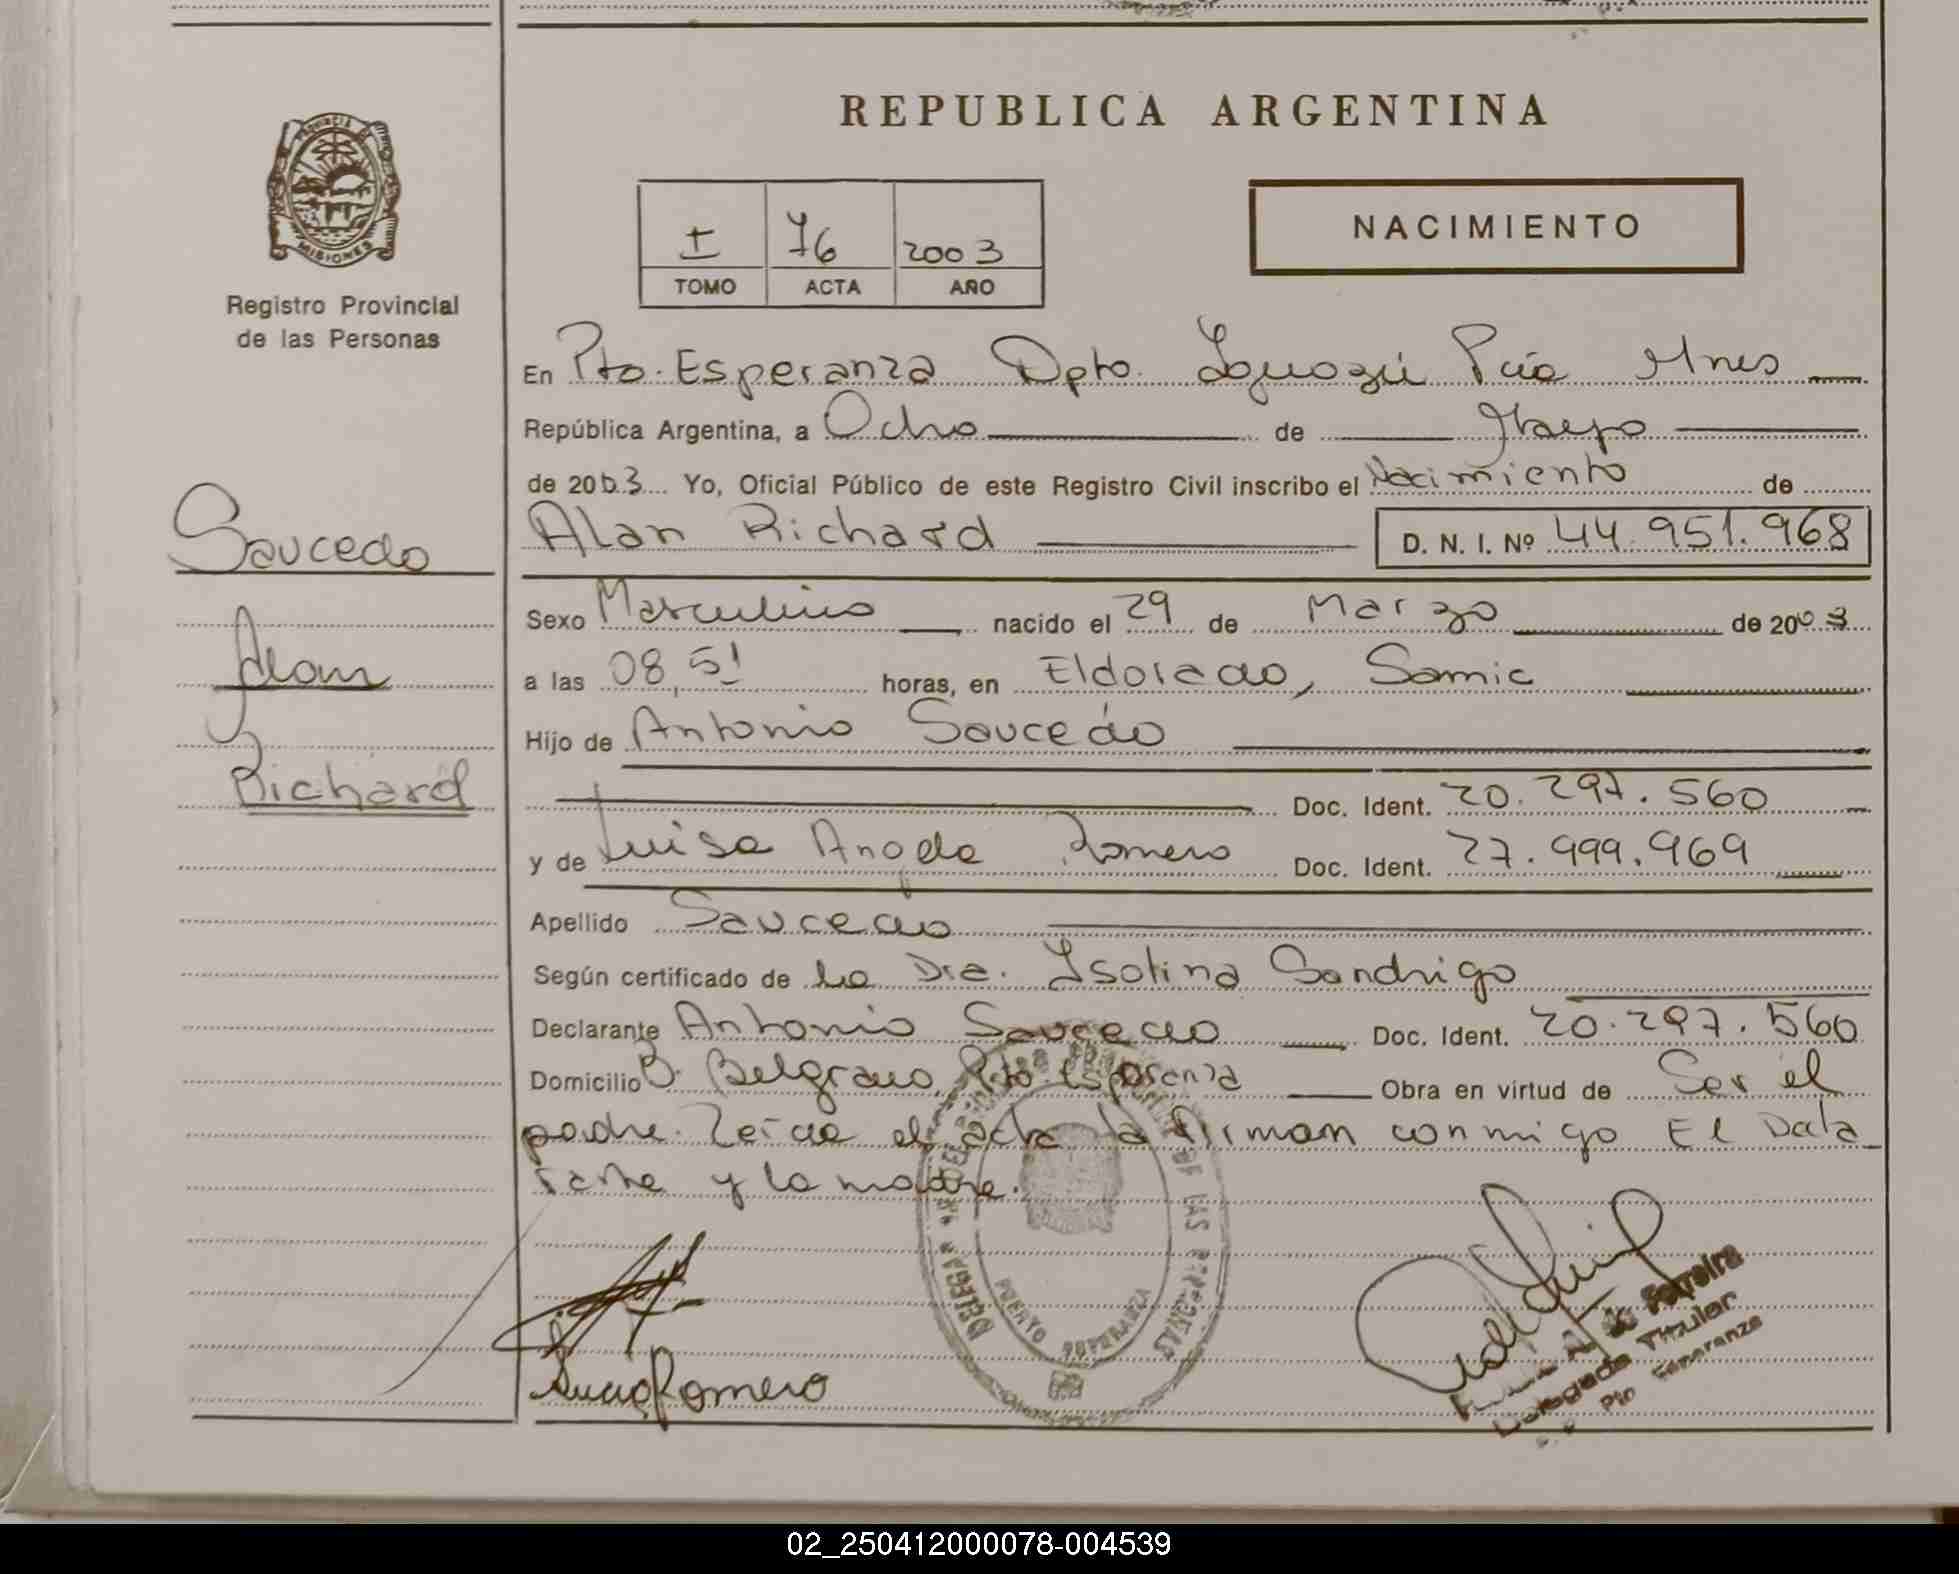 REPUBLICA ARGENTINA
PROVINCIA DE
MISIONES
Registro Provincial
de las Personas
I 76 2003
TOMO ACTA AÑO
NACIMIENTO
En Pto. Esperanza Dpto. Iguazú Pcia Mnes
República Argentina, a Ocho de Mayo
de 2003 Yo, Oficial Público de este Registro Civil inscribo el Nacimiento de
Alan Richard D. N. I. Nº 44.951.968
Saucedo
Alan
Richard
Sexo Masculino nacido el 29 de Marzo de 2003
a las 08,51 horas, en Eldorado, Samic
Hijo de Antonio Saucedo
Doc. Ident. 20.297.560
y de Luisa Angela Romero Doc. Ident. 27.999.969
Apellido Saucedo
Según certificado de la Dra. Isolina Sandrigo
Declarante Antonio Saucedo Doc. Ident. 20.297.560
Domicilio B. Belgrano, Pto. Esperanza Obra en virtud de Ser el
padre. Leída el acta la firman conmigo El Dala
rante y la madre.
DE LAS PERSONAS
PUERTO ESPERANZA
Romero
Ferreira
Delegada Titular
Pto Esperanza
02_250412000078-004539